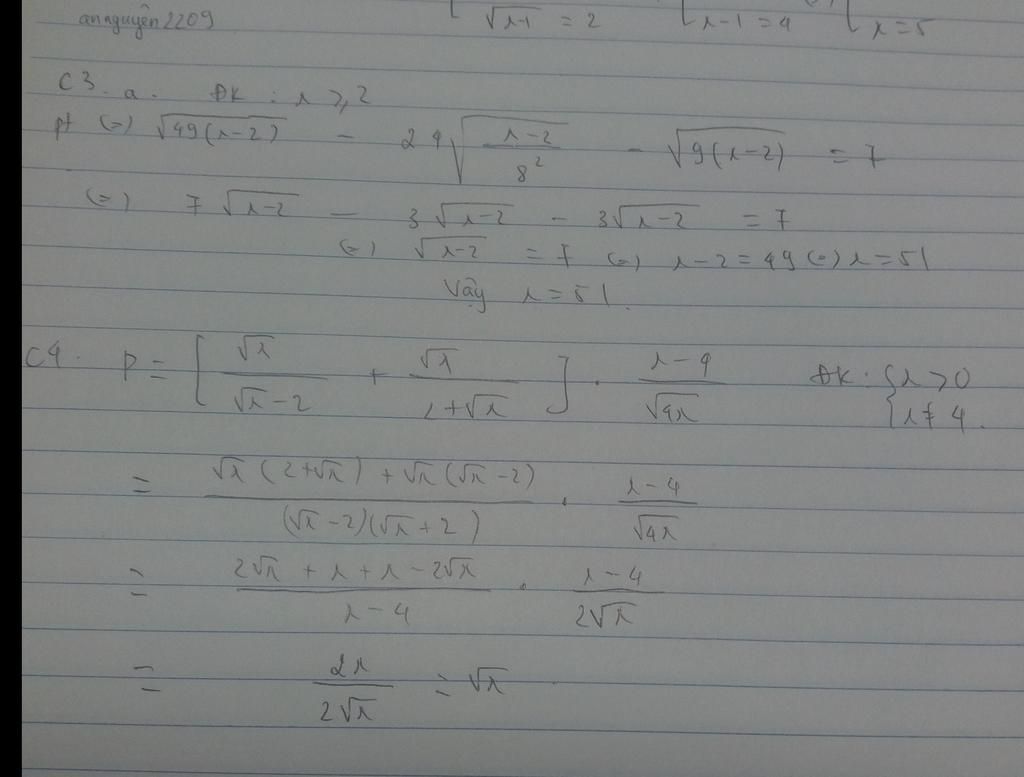 annguyên2209
√(x-1) = 2   x-1=4   x=5
C3. a. ĐK : x ⩾ 2
pt (=) √(49(x-2)) - 24√((x-2)/8²) - √(9(x-2)) = 7
(=) 7√(x-2) - 3√(x-2) - 3√(x-2) = 7
(=) √(x-2) = 7 (=) x-2=49 (=) x=51
Vậy x=51.
C4. P = [√x/(√x-2) + √x/(2+√x)] . (x-4)/√(4x)   ĐK: {x>0
{x≠4.
= (√x(2+√x)+√x(√x-2))/((√x-2)(√x+2)) . (x-4)/√(4x)
= (2√x+x+x-2√x)/(x-4) . (x-4)/(2√x)
= 2x/(2√x) = √x